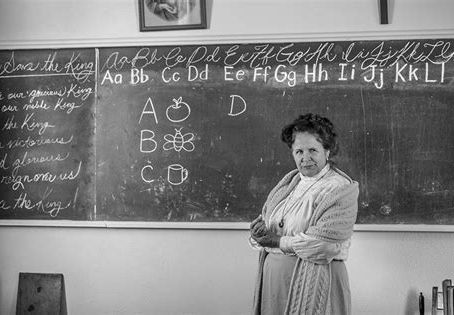 Save the King
our gracious King
our noble King
the King
victorious
glorious
reign o'er us
the King!
Aa Bb Cc Dd Ee Ff Gg Hh Ii Jj Kk Ll
Aa Bb Cc Dd Ee Ff Gg Hh Ii Jj Kk Ll
A D
B
C